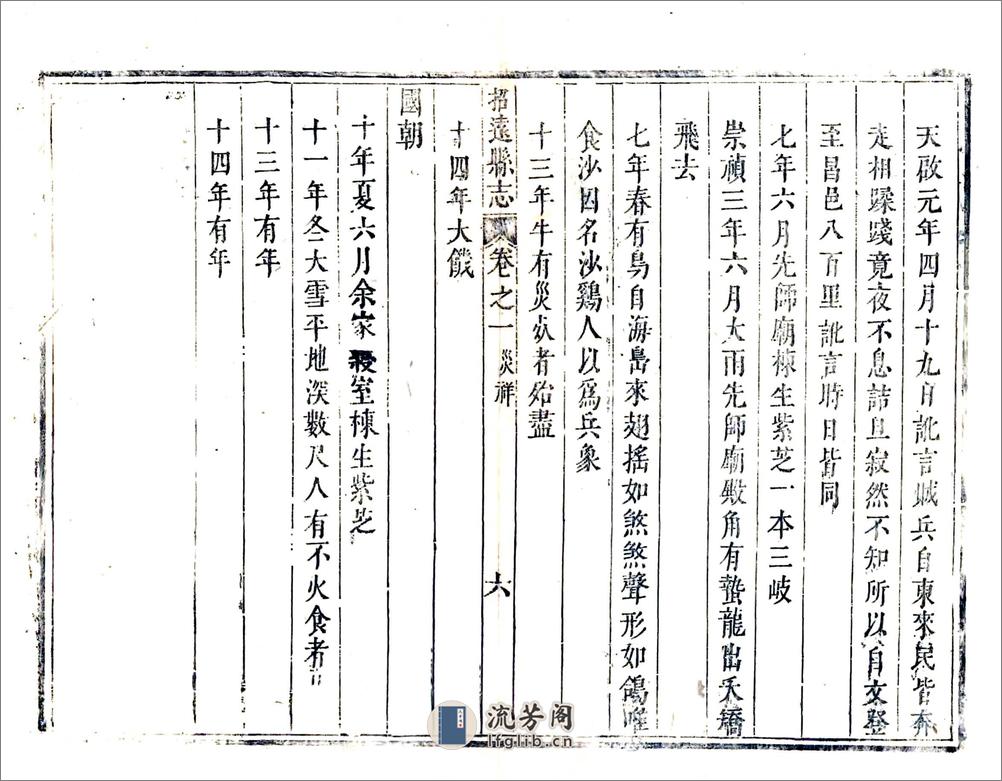 天啟元年四月十九日訛言賊兵自東來民皆奔
走相蹂踐竟夜不息詰旦寂然不知所以自文登
至昌邑八百里訛言時日皆同
七年六月先師廟棟生紫芝一本三岐
崇禎三年六月大雨先師廟殿角有蟄龍出天橋
飛去
七年春有鳥自海島來翅搖如煞煞聲形如鴿唯
食沙因名沙鷄人以爲兵象
十三年牛有災死者殆盡
十四年大饑
招遠縣志 卷之一 災祥 六
國朝
十年夏六月余家寢室棟生紫芝
十一年冬大雪平地深數尺人有不火食者
十三年有年
十四年有年
流芳阁
lfglib.com.cn